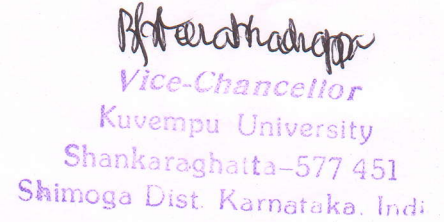 Vice-Chancellor
Kuvempu University
Shankaraghatta-577 451
Shimoga Dist. Karnataka. Indi